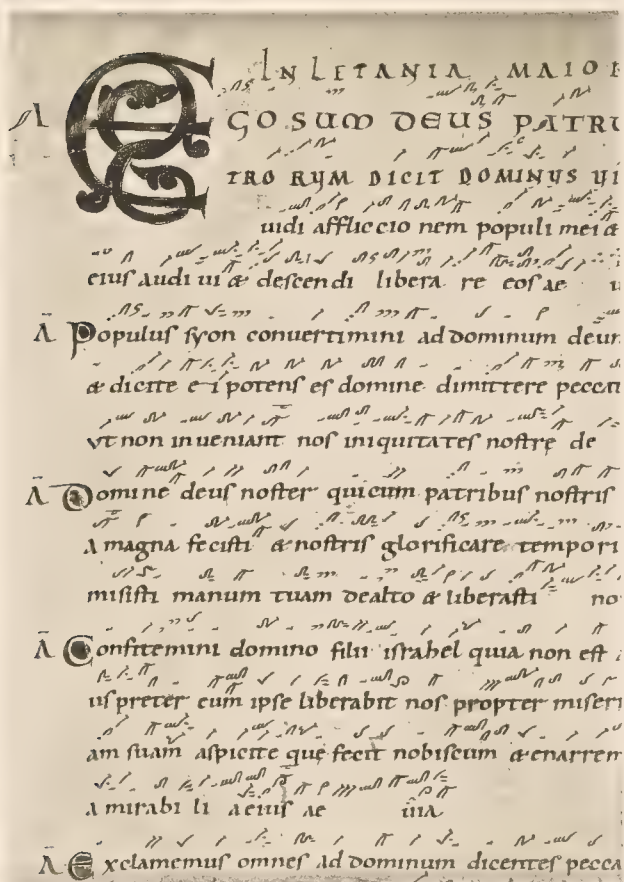 IN LETANIA MAIOR
A EGO SUM DEUS PATRU
TRORUM DICIT DOMINUS VI
uidi affliccionem populi mei &
eius audiui & descendi liberare eos ae u
A Populus syon convertimini ad dominum deum
& dicite ei potens es domine dimittere peccata
vt non inueniant nos iniquitates nostrę
A Domine deus noster qui cum patribus nostris
a magna fecisti & nostris glorificare tempori
misisti manum tuam de alto & liberasti no
A Confitemini domino filii israhel quia non est
us pręter eum ipse liberabit nos propter miseri
am suam aspicite quę fecit nobiscum & enarrem
a mirabilia eius ae uia
A Exclamemus omnes ad dominum dicentes pecca